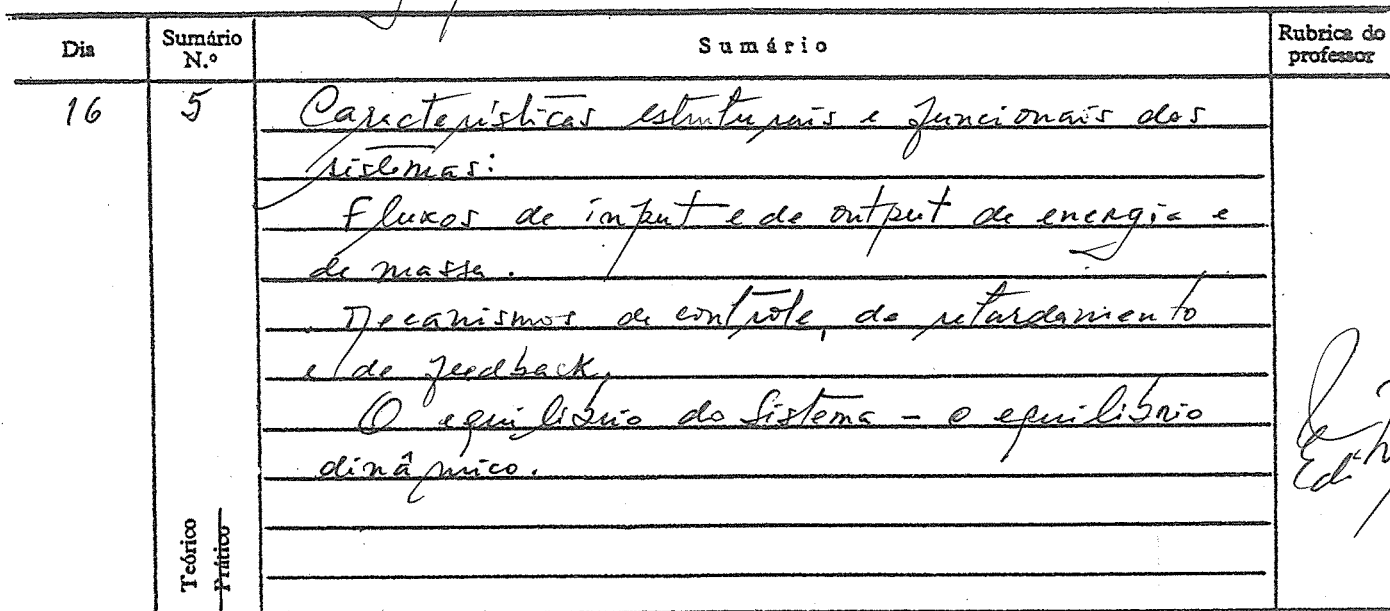 Dia Sumário N.º Sumário Rubrica do professor
16 5 Características estruturais e funcionais dos
sistemas:
Fluxos de input e de output de energia e
de massa.
Mecanismos de contrôle, de retardamento
e de feedback.
O equilíbrio do sistema - o equilíbrio
dinâmico.
Teórico
Prático